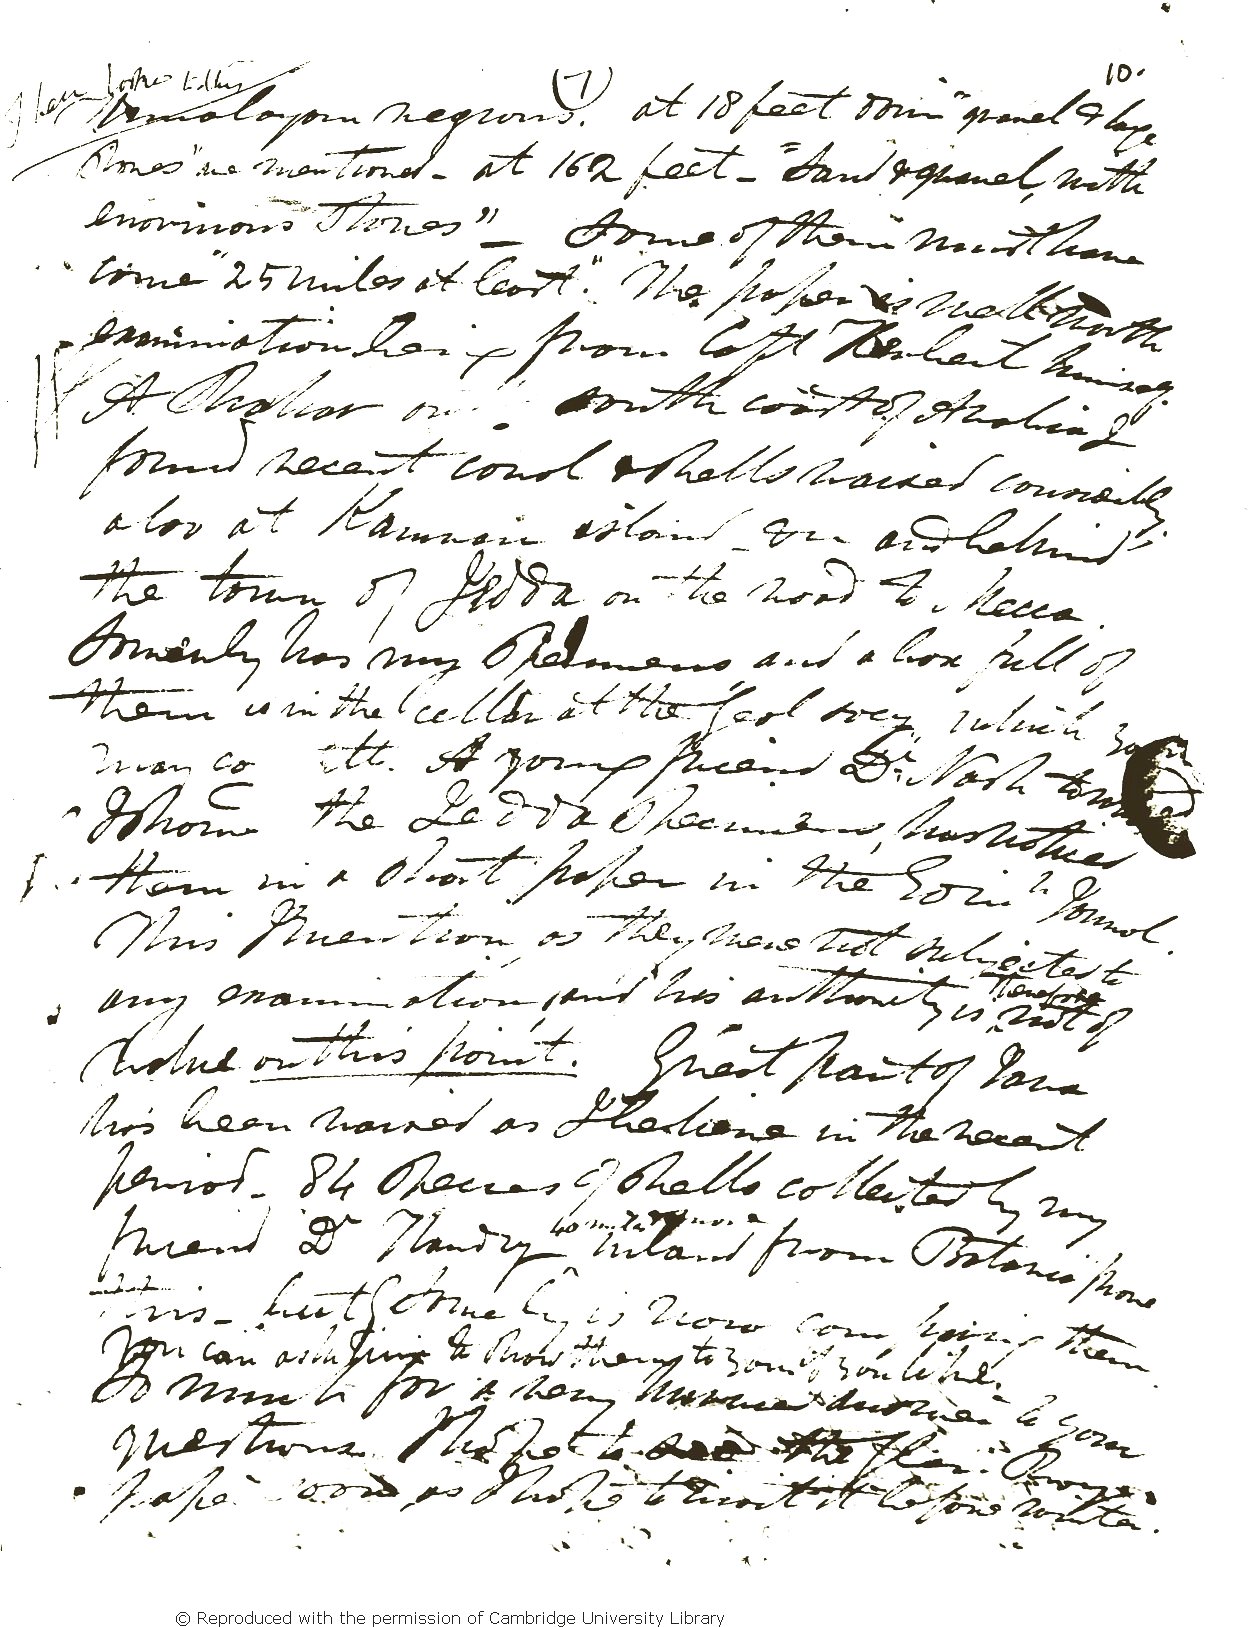 (7) 10.
Himalayan regions. at 18 feet down "gravel & large
stones" are mentioned - at 162 feet - "Sand & gravel, with
enormous stones" - Some of them "must have
come "25 miles at least". The paper is well worth
examination being from Capt Herbert
At south coast of Arabia I
found recent coral & shells raised
also at Kamran island - & and behind
the town of Jedda on the road to Mecca.
Sowerby has my Specimens and a box full of
them is in the cellar at the Geol socy, which you
may co A young friend Dr. Nash to whom
I shown the Jedda Specimens, has noticed
them in a short paper in the Edinh Journal.
This I mention, as they were not subjected to
any examination, and his authority is therefore not of
value on this point. Great part of Java
has been raised as I believe in the recent
period - 84 Species of shells collected by my
friend Dr inland from Batavia prove
this - but Sowerby is now comparing them
You can ask him to show them to you if you like.
So much for a very hurried answer to your
questions. I hope to see the
paper soon, as I hope to visit it before winter.
© Reproduced with the permission of Cambridge University Library